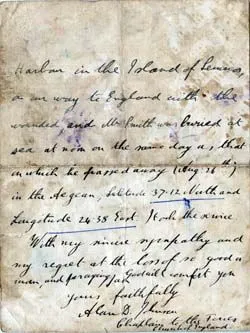 Harbour in the Island of Lemnos
on our way to England with the
wounded and Mr Smith was buried at
sea at noon on the same day as that
on which he passed away (Aug. 26th)
in the Aegean, Latitude 37.12 North and
Longitude 24.38 East. I took the service
With my sincere sympathy and
my regret at the loss of so good a
man, and praying that God will comfort you
Yours faithfully
Alan D.
Chaplain to the Forces
Church of England.